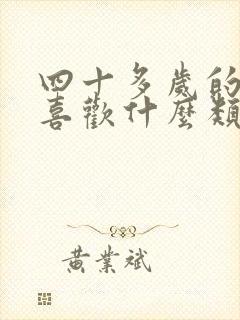 四十多歲的
喜歡什麼類
黃業斌